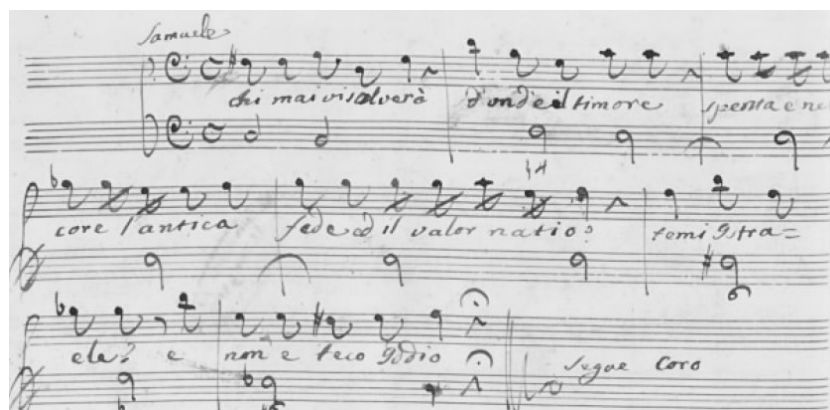 Samuele
chi mai vi salverà d'onde il timore spenta è ne
core l'antica fede ed il valor natio? temi Isra=
ele? e non è teco Iddio
segue Coro